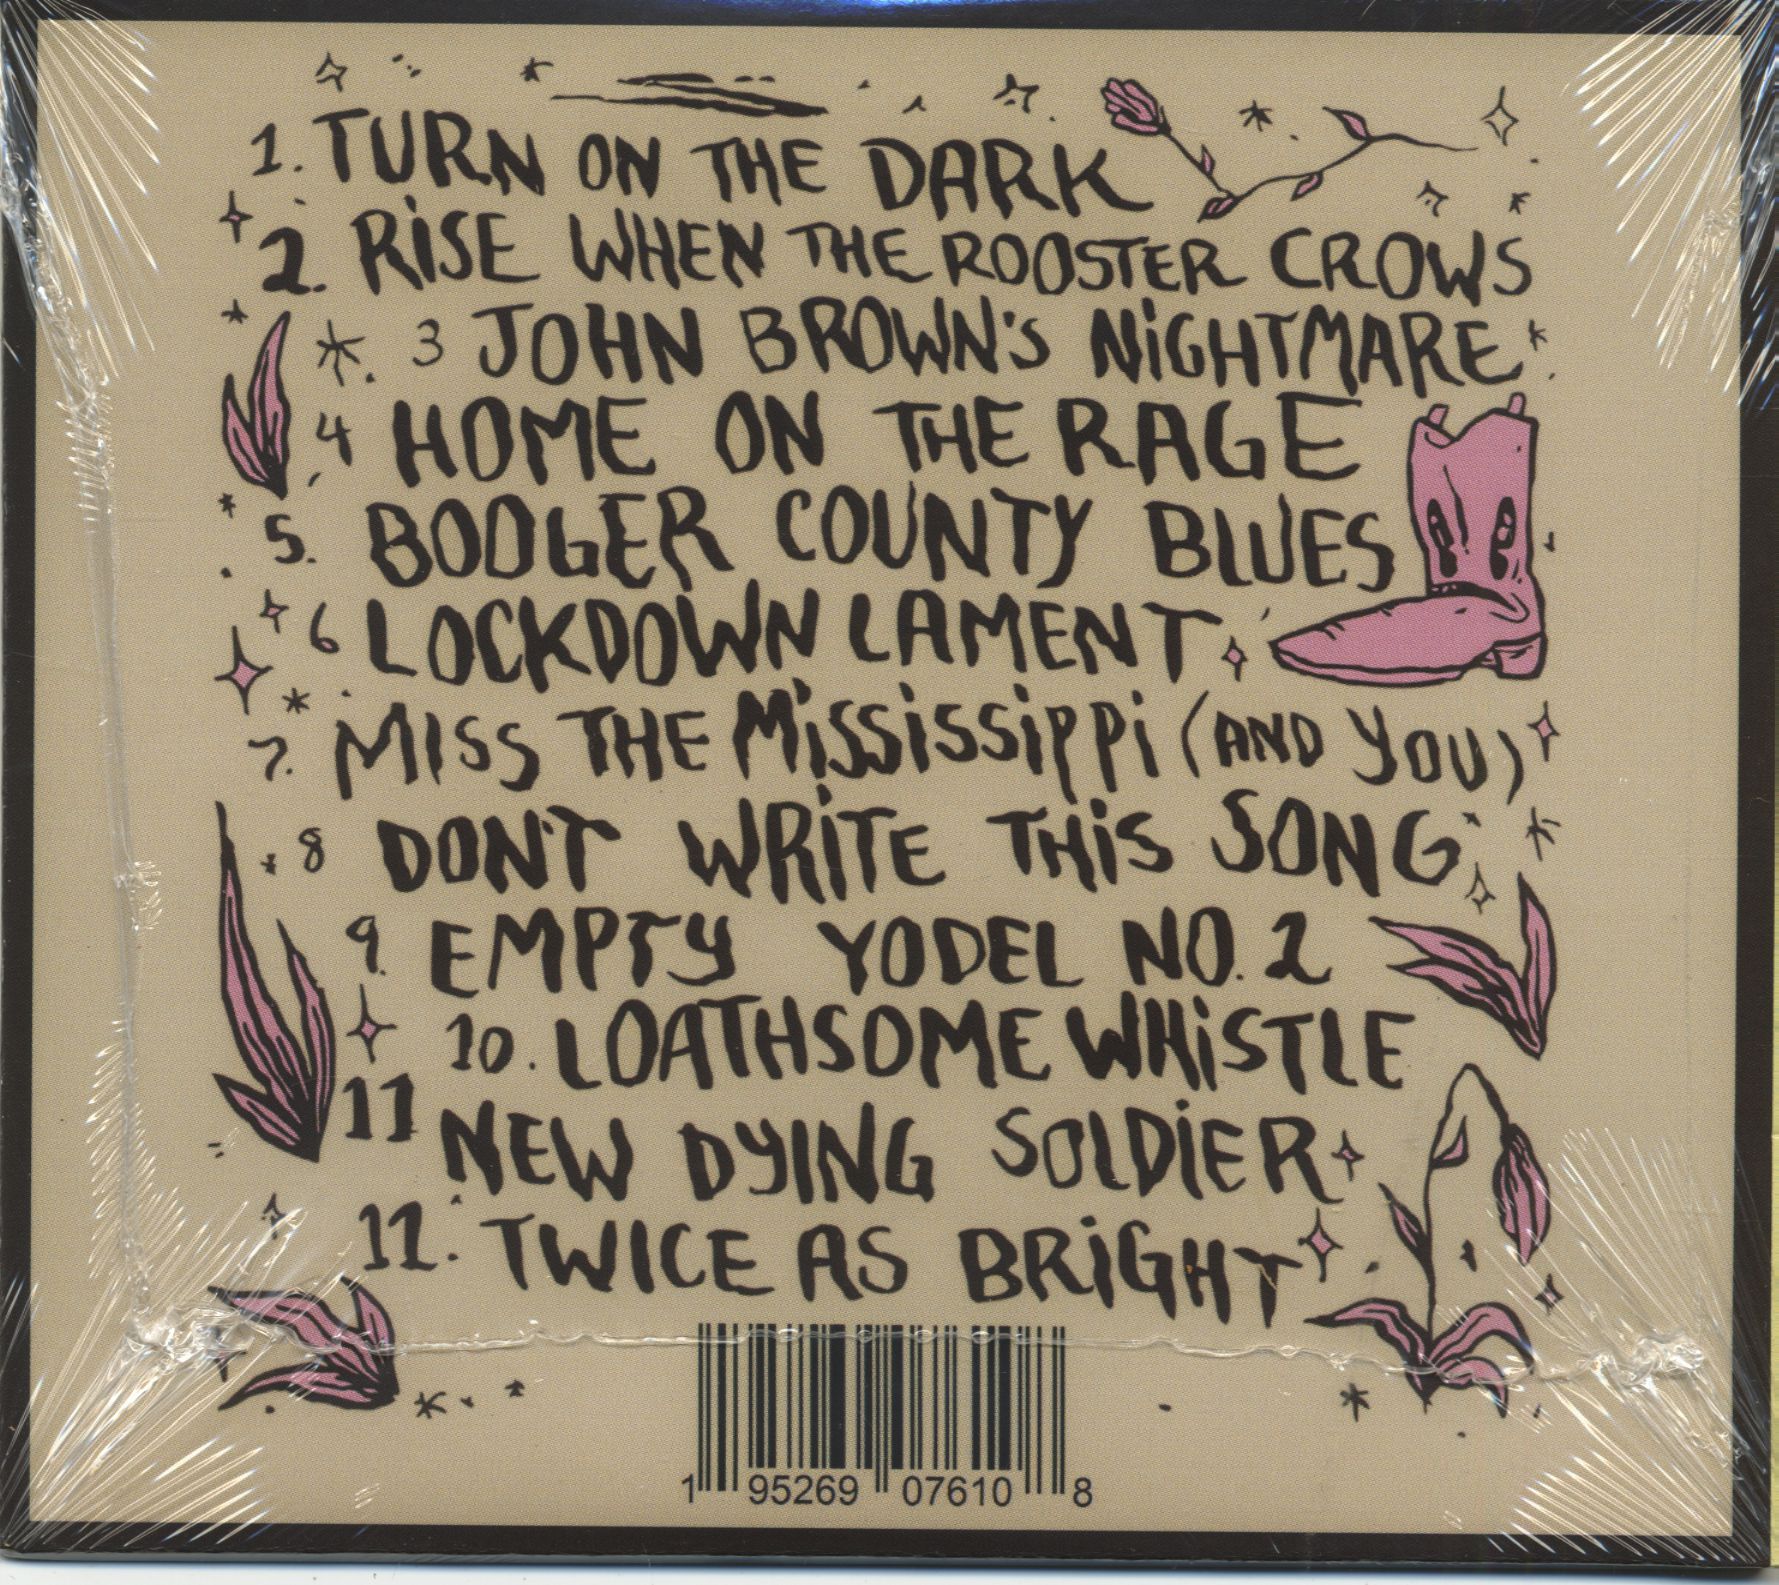 1. TURN ON THE DARK
2. RISE WHEN THE ROOSTER CROWS
3 JOHN BROWN'S NIGHTMARE
4 HOME ON THE RAGE
5. BOOGER COUNTY BLUES
6 LOCKDOWN LAMENT
7. MISS THE MISSISSIPPI (AND YOU)
8 DON'T WRITE THIS SONG
9. EMPTY YODEL NO. 2
10. LOATHSOME WHISTLE
11 NEW DYING SOLDIER
12. TWICE AS BRIGHT
1 95269 07610 8